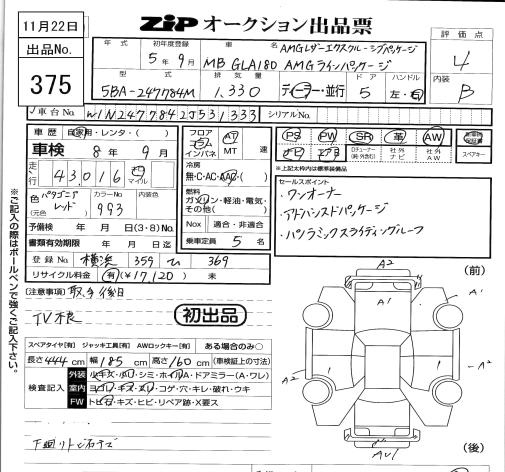 11月22日
出品No.
375
ZiP オークション出品票
評価点
4
内装
B
年式
初年度登録
5年9月
車名
AMGレザーエクスクルーシブパッケージ
MB GLA180 AMGラインパッケージ
型式
5BA-247784M
排気量
1,330
ディーラー・並行
ドア
5
ハンドル
左・右
車台No.
W1N2477842J531333
シリアルNo.
車歴 自家用・レンタ・( )
車検 8年9月
走行 43,016 キロ マイル
色 パタゴニアレッド
(元色)
カラーNo
993
内装色
予備検査 年 月 日(3・8)No.
書類有効期限 年 月 日迄
登録No 横浜 359 ひ 369
リサイクル料金 (有)(¥17,120) 未
フロア
コラム
インパネ
AT
MT
速
冷房
無・C・AC・AAC・( )
燃料
ガソリン・軽油・電気・
その他( )
Nox 適合・非適合
乗車定員 5 名
PS PW SR 革 AW
ナビ
Dチューナー
社外ナビ
社外AW
スペアキー
*上記太枠内は標準装備品
セールスポイント
・ワンオーナー
・アドバンスドパッケージ
・パノラミックスライディングルーフ
[注意事項] 取手後日
TV不良
初出品
スペアタイヤ[有] ジャッキ工具[有] AWロックキー[有] ある場合のみ○
長さ444cm 幅185cm 高さ160cm (車検証上の寸法)
検査記入
外装 小キズ・凹・シミ・ホイルA・ドアミラー(A・ワレ)
室内 ヨゴレ・キズ・スレ・コゲ・穴・キレ・破れ・ウキ
FW トビ石・キズ・ヒビ・リペア跡・X要ス
※ご記入の際はボールペンで強くご記入下さい。
(前)
A2
A1
A1
A2
A2
(後)